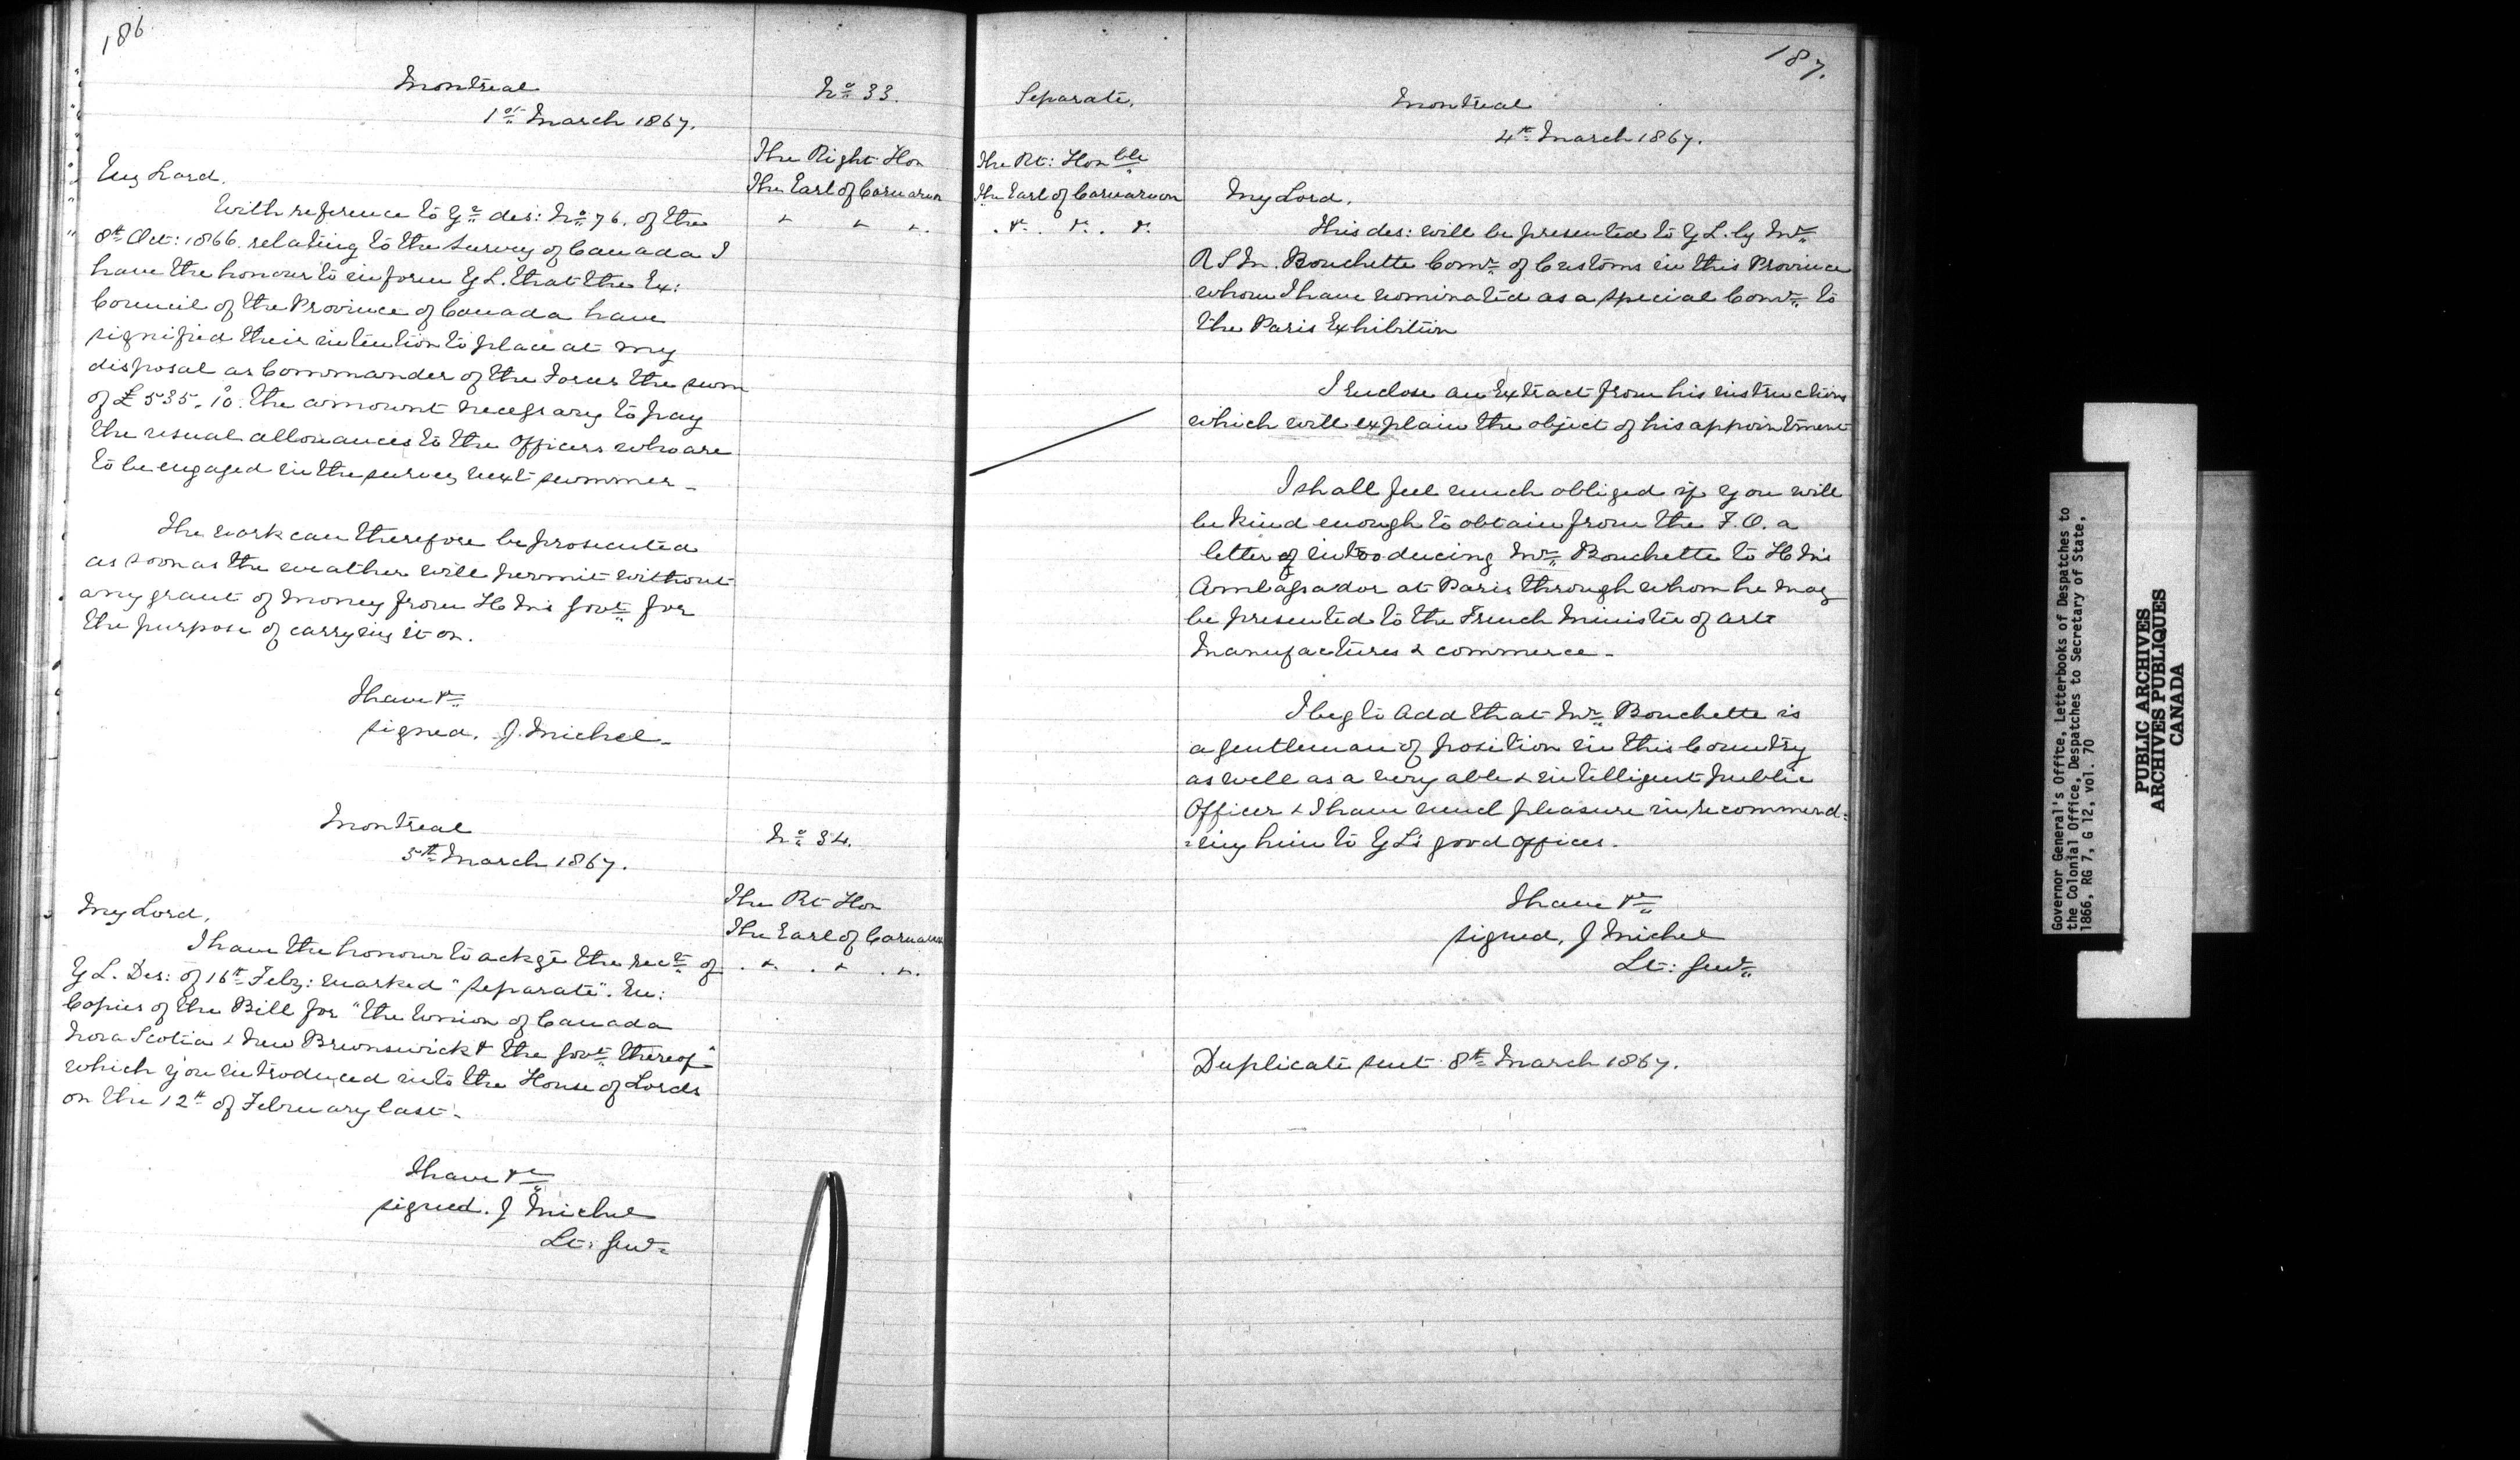 186
Montreal
1st March 1867.
No 33.
The Right Hon
The Earl of Carnarvon
" " ".
My Lord.
With reference to Yr des: No 76. of the
8th Oct: 1866. relating to the Survey of Canada I
have the honour to inform Y L. that the Ex:
Council of the Province of Canada have
signified their intention to place at my
disposal as Commander of the Forces the sum
of £535.10. the amount necessary to pay
the usual allowances to the Officers who are
to be engaged in the survey next summer -
The work can therefore be prosecuted
as soon as the weather will permit without
any grant of money from H M's Govt for
the purpose of carrying it on.
I have &c
signed. J. Michel -
Montreal
5th March 1867.
No 34.
The Rt Hon
The Earl of Carnarvon
. " . " . ".
My Lord,
I have the honour to ackge the rect of
Y L. Des: of 16th Feby: marked "Separate". En:
Copies of the Bill for "the Union of Canada
Nova Scotia & New Brunswick & the Govt thereof"
which you introduced into the House of Lords
on the 12th of February last -
I have &c
signed. J Michel
Lt: Genl
187.
Separate.
The Rt: Honble
The Earl of Carnarvon
. &c . &c . &c
Montreal
4th March 1867.
My Lord,
This des: will be presented to Y L. by Mr
R S M. Bouchette Comr of Customs in this Province
whom I have nominated as a special Comr to
the Paris Exhibition
I enclose an Extract from his instructions
which will explain the object of his appointment
I shall feel much obliged if you will
be kind enough to obtain from the F.O. a
letter of introducing Mr Bouchette to H M's
Ambassador at Paris through whom he may
be presented to the French Minister of Arts
Manufactures & commerce -
I beg to add that Mr Bouchette is
a gentleman of position in this Country
as well as a very able & intelligent public
Officer & I have much pleasure in recommend=
=ing him to Y L's good offices -
I have &c
signed, J Michel
Lt: Genl
Duplicate sent 8th March 1867.
Governor General's Office, Letterbooks of Despatches to
the Colonial Office, Despatches to Secretary of State,
1866, RG 7, G 12, vol. 70
PUBLIC ARCHIVES
ARCHIVES PUBLIQUES
CANADA